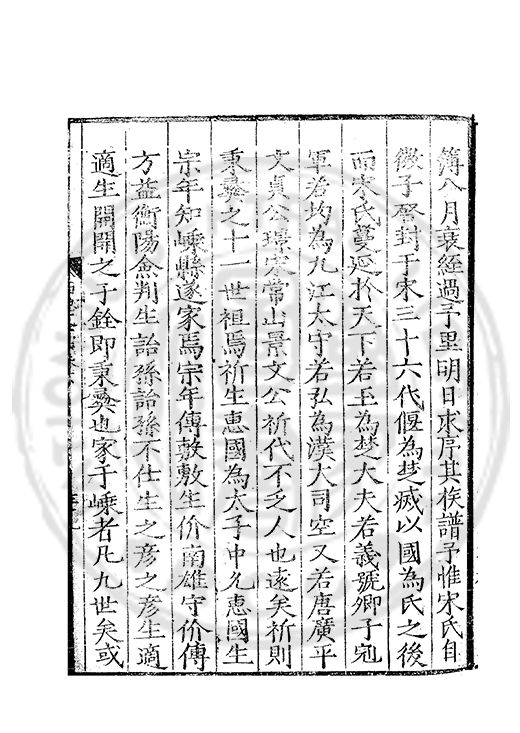 簿八月衰絰過予里明日求序其族譜予惟宋氏自
微子啓封于宋三十六代偃為楚滅以國為氏之後
而宋氏蔓延於天下若玉為楚大夫若義號卿子冠
軍若均為九江太守若弘為漢大司空又若唐廣平
文貞公璟宋常山景文公祈代不乏人也遠矣祈則
秉彝之十一世祖焉祈生惠國為太子中允惠國生
宗年知嵊縣遂家焉宗年傳敦敷生价南雄守价傳
方益衡陽僉判生詒孫詒孫不仕生之彥之彥生適
適生開開之子銓即秉彝也家于嵊者凡九世矣或